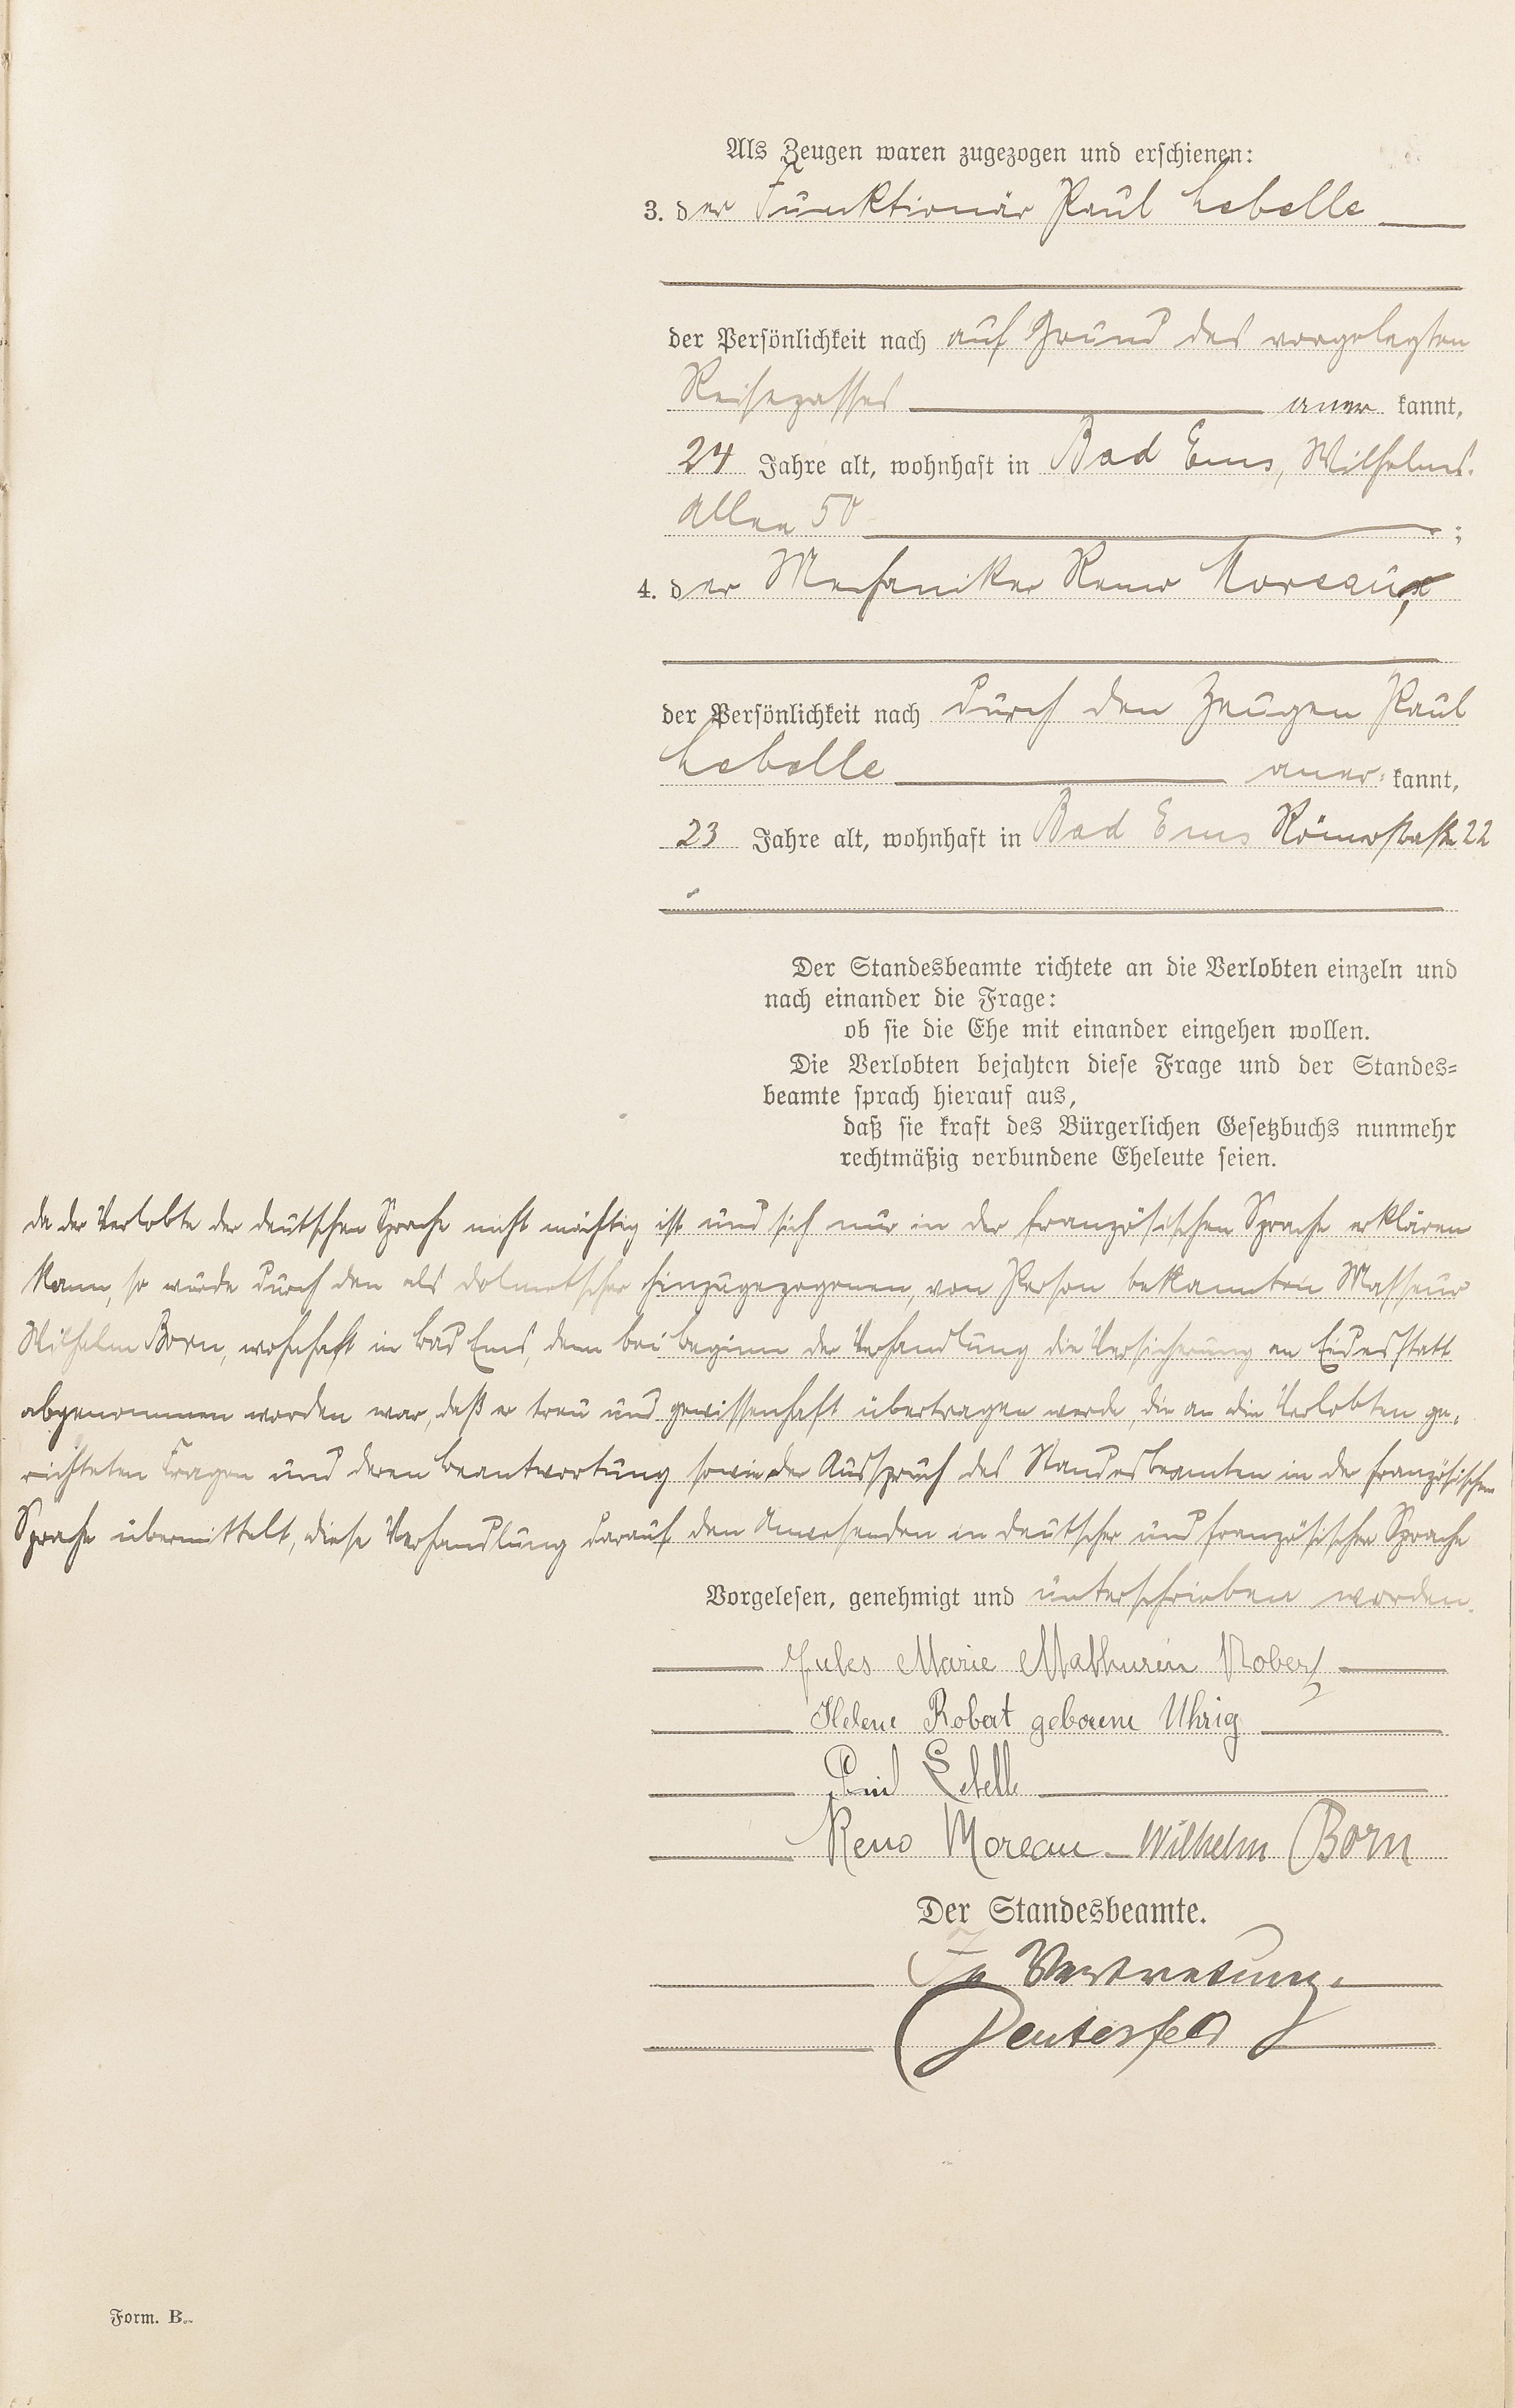 Als Zeugen waren zugezogen und erschienen:
3. der Funktionär Paul Lebelle
der Persönlichkeit nach auf Grund des vorgelegten
Reisepasses aner kannt,
24 Jahre alt, wohnhaft in Bad Ems, Wilhelms-
Allee 50 ;
4. der Mechaniker Reno Moreau,
der Persönlichkeit nach durch den Zeugen Paul
Lebelle aner- kannt,
23 Jahre alt, wohnhaft in Bad Ems Römerstraße 22
Der Standesbeamte richtete an die Verlobten einzeln und
nach einander die Frage:
ob sie die Ehe mit einander eingehen wollen.
Die Verlobten bejahten diese Frage und der Standes-
beamte sprach hierauf aus,
daß sie kraft des Bürgerlichen Gesetzbuchs nunmehr
rechtmäßig verbundene Eheleute seien.
da der Verlobte der deutschen Sprache nicht mächtig ist und sich nur in der französischen Sprache erklären
kann, so wurde durch den als Dolmetscher hinzugezogenen, von Person bekannten Masseur
Wilhelm Born, wohnhaft in Bad Ems, dem bei Beginn der Verhandlung die Versicherung an Eidesstatt
abgenommen worden war, daß er treu und gewissenhaft übertragen werde, die an die Verlobten ge-
richteten Fragen und deren Beantwortung sowie der Ausspruch des Standesbeamten in der französischen
Sprache übermittelt, diese Verhandlung darauf den Anwesenden in deutscher und französischer Sprache
Vorgelesen, genehmigt und unterschrieben worden.
Jules Marie Mathurin Robert
Helene Robert geborene Uhrig
Paul Lebelle
Reno Moreau - Wilhelm Born
Der Standesbeamte.
In Vertretung.
Form. B.